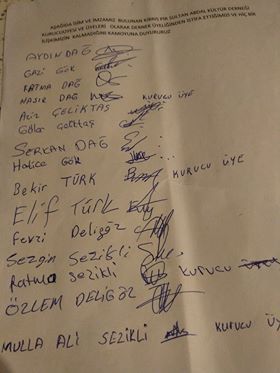 AŞAĞIDA İSİM VE İMZAMIZ BULUNAN KIBRIS PİR SULTAN ABDAL KÜLTÜR DERNEĞİ
KURUCU ÜYESİ VE ÜYELERİ OLARAK DERNEK ÜYELİĞİNDEN İSTİFA ETTİĞİMİZİ VE HİÇ BİR
İLİŞKİMİZİN KALMADIĞINI KAMOYUNA DUYURURUZ
AYDIN DAĞ
GAZİ GÖK
FATMA DAĞ
NASIR DAĞ KURUCU ÜYE
Aziz ÇELİKTAŞ
SERKAN DAĞ
Hatice Gök
Bekir TÜRK KURUCU ÜYE
Elif Türk
Fevzi Deligöz
Sezgin Sezikli
Fatma Sezikli KURUCU
ÖZLEM DELİGÖZ
MULLA ALİ SEZİKLİ KURUCU ÜY